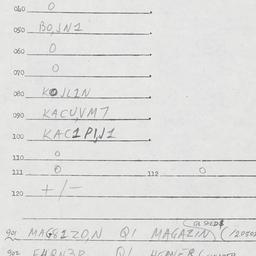 040 O
050 BO,JN1
060 O
070 O
080 KOJL1N
090 KACU,VM7
100 KAC1P1,J1
110 O
111 O 112 O
120 +/-
901 MAGG1ZO,N Q1 MAGAZIN
902